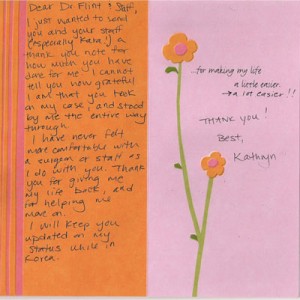 Dear Dr Flint & Staff,
I just wanted to send
you and your staff
(especially Kara) a
thank you note for
how much you have
done for me. I cannot
tell you how grateful
I am that you took
on my case, and stood
by me the entire way
through.
I have never felt
more comfortable with
a surgeon or staff as
I do with you. Thank
you for giving me
my life back, and
for helping me
move on.
I will keep you
updated on my
status while in
Korea.
...for making my life
a little easier.
→ a lot easier!!
THANK YOU!
Best,
Kathryn